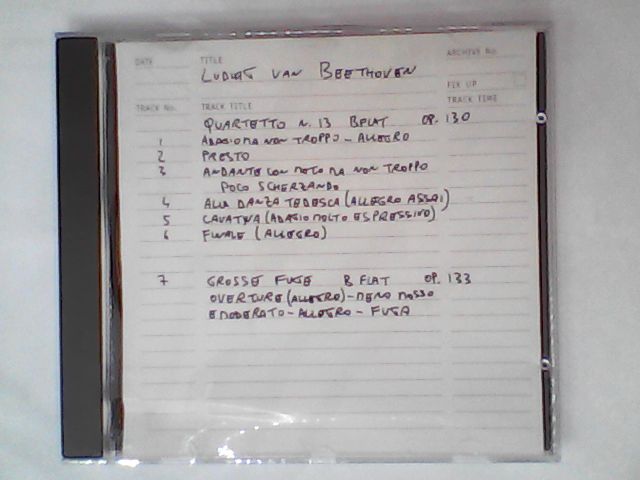 DATE TITLE ARCHIVE No.
LUDWIG VAN BEETHOVEN
FIX UP
TRACK No. TRACK TITLE TRACK TIME
QUARTETTO N. 13 B FLAT OP. 130
1 ADAGIO MA NON TROPPO - ALLEGRO
2 PRESTO
3 ANDANTE CON MOTO MA NON TROPPO
POCO SCHERZANDO
4 ALLA DANZA TEDESCA (ALLEGRO ASSAI)
5 CAVATINA (ADAGIO MOLTO ESPRESSIVO)
6 FINALE (ALLEGRO)
7 GROSSE FUGE B FLAT OP. 133
OVERTURE (ALLEGRO) - MENO MOSSO
E MODERATO - ALLEGRO - FUGA